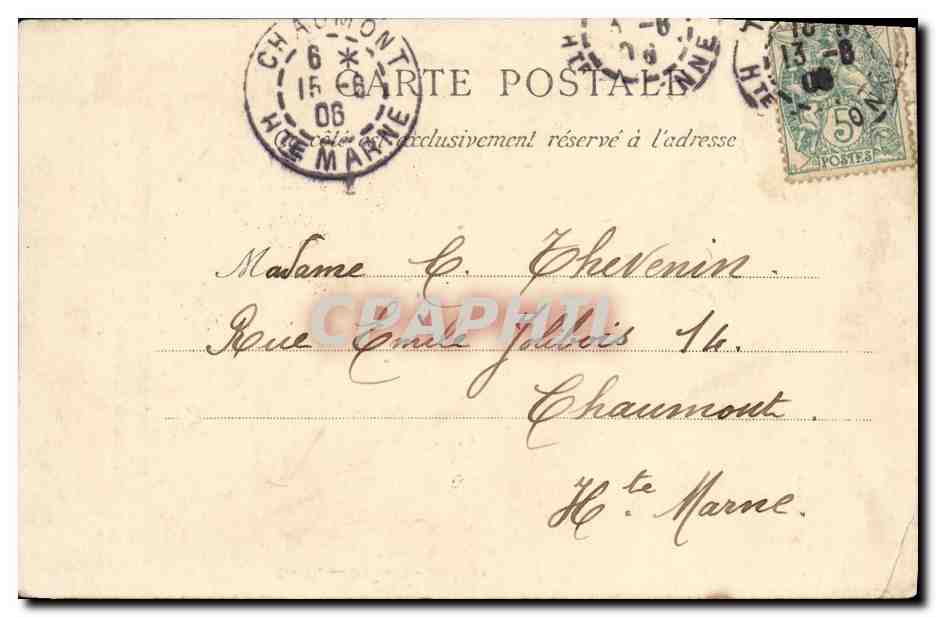 CHAUMONT
6 *
15 -6
06
HTE MARNE
-6
06
HTE
NNE
13 -6
06
HTE
ON
5c
POSTES
CARTE POSTALE
Ce côté est exclusivement réservé à l'adresse
Madame C. Thevenin.
Rue Emile Jolibois 14.
Chaumont.
Hte. Marne.
CPAPHIL